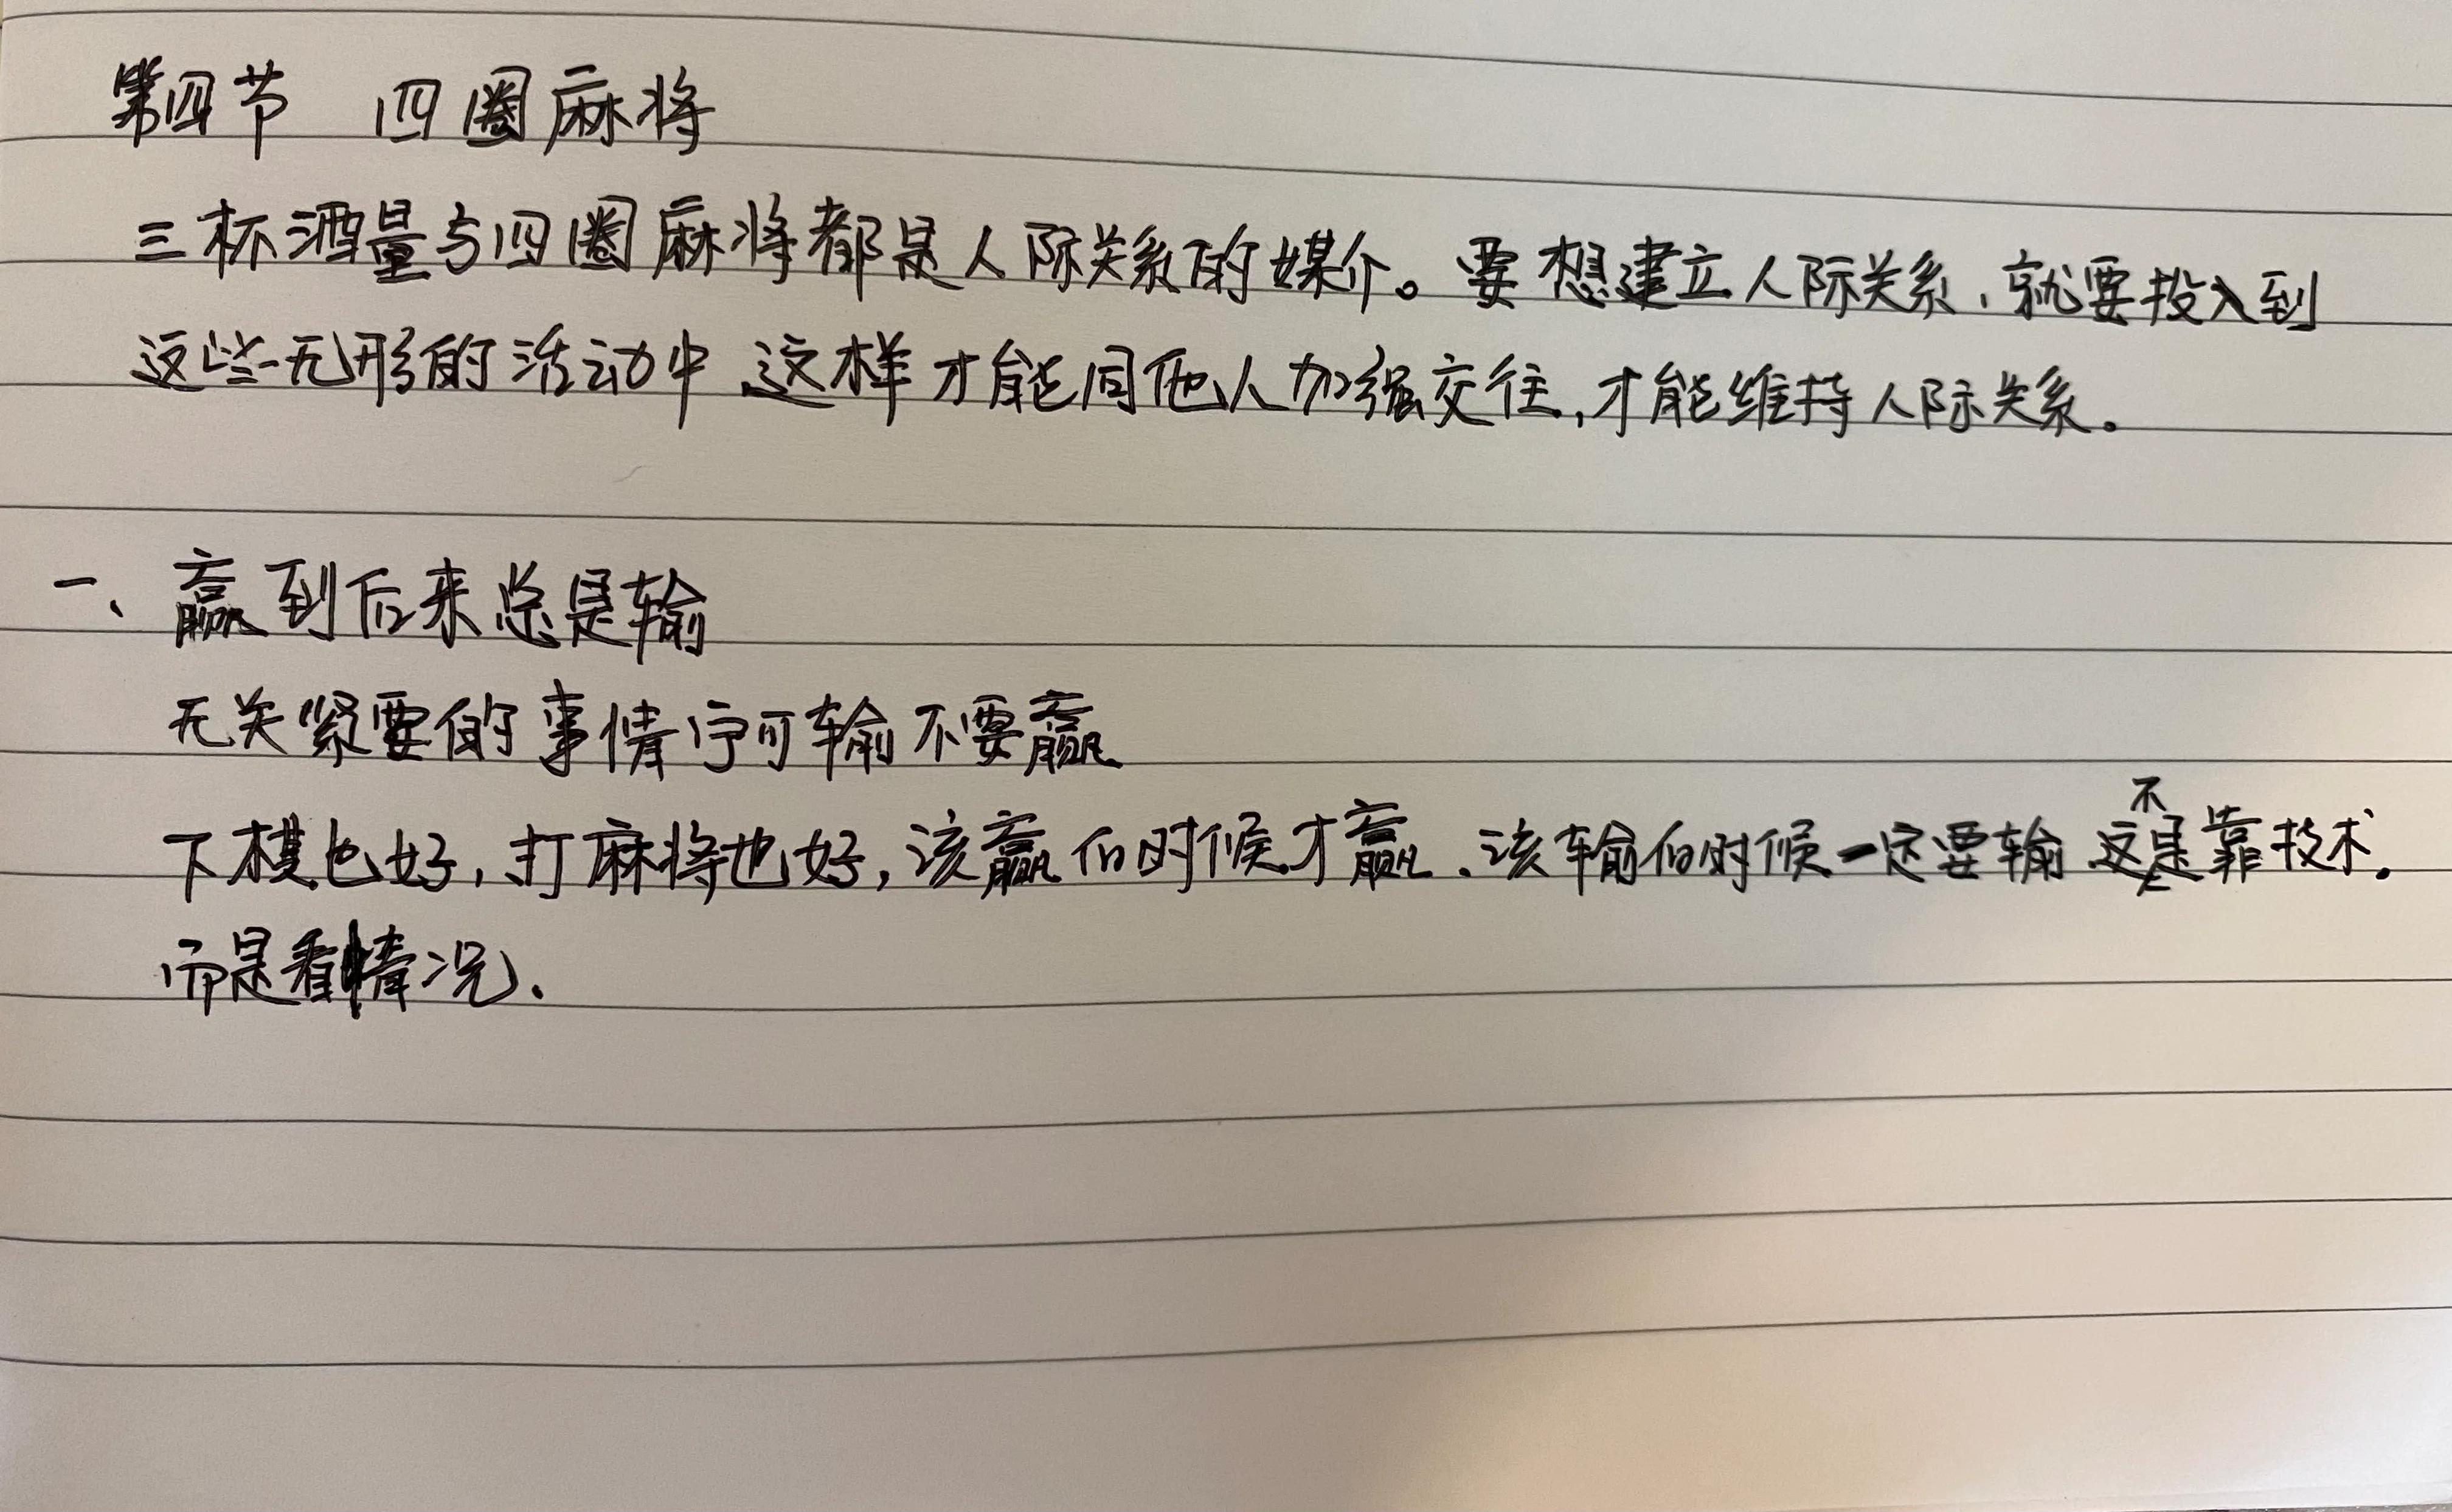 第四节 四圈麻将
三杯酒量与四圈麻将都是人际关系的媒介。要想建立人际关系,就要投入到
这些无形的活动中,这样才能同他人加强交往,才能维持人际关系。
一、赢到后来总是输
无关紧要的事情宁可输不要赢
下棋也好,打麻将也好,该赢的时候才赢,该输的时候一定要输 这不是靠技术.
而是看情况、